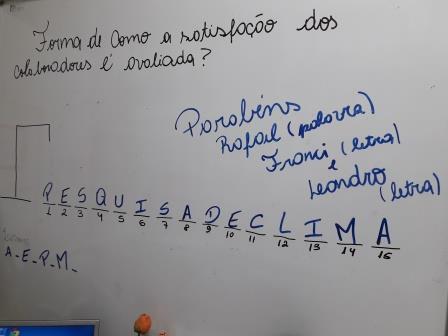 Forma de como a satisfação dos
colaboradores é avaliada?
Parabéns
Rafael (palavra)
Franci (letra)
e
Leandro (letra)
P E S Q U I S A D E C L I M A
1 2 3 4 5 6 7 8 9 10 11 12 13 14 15
A - E - P - M -